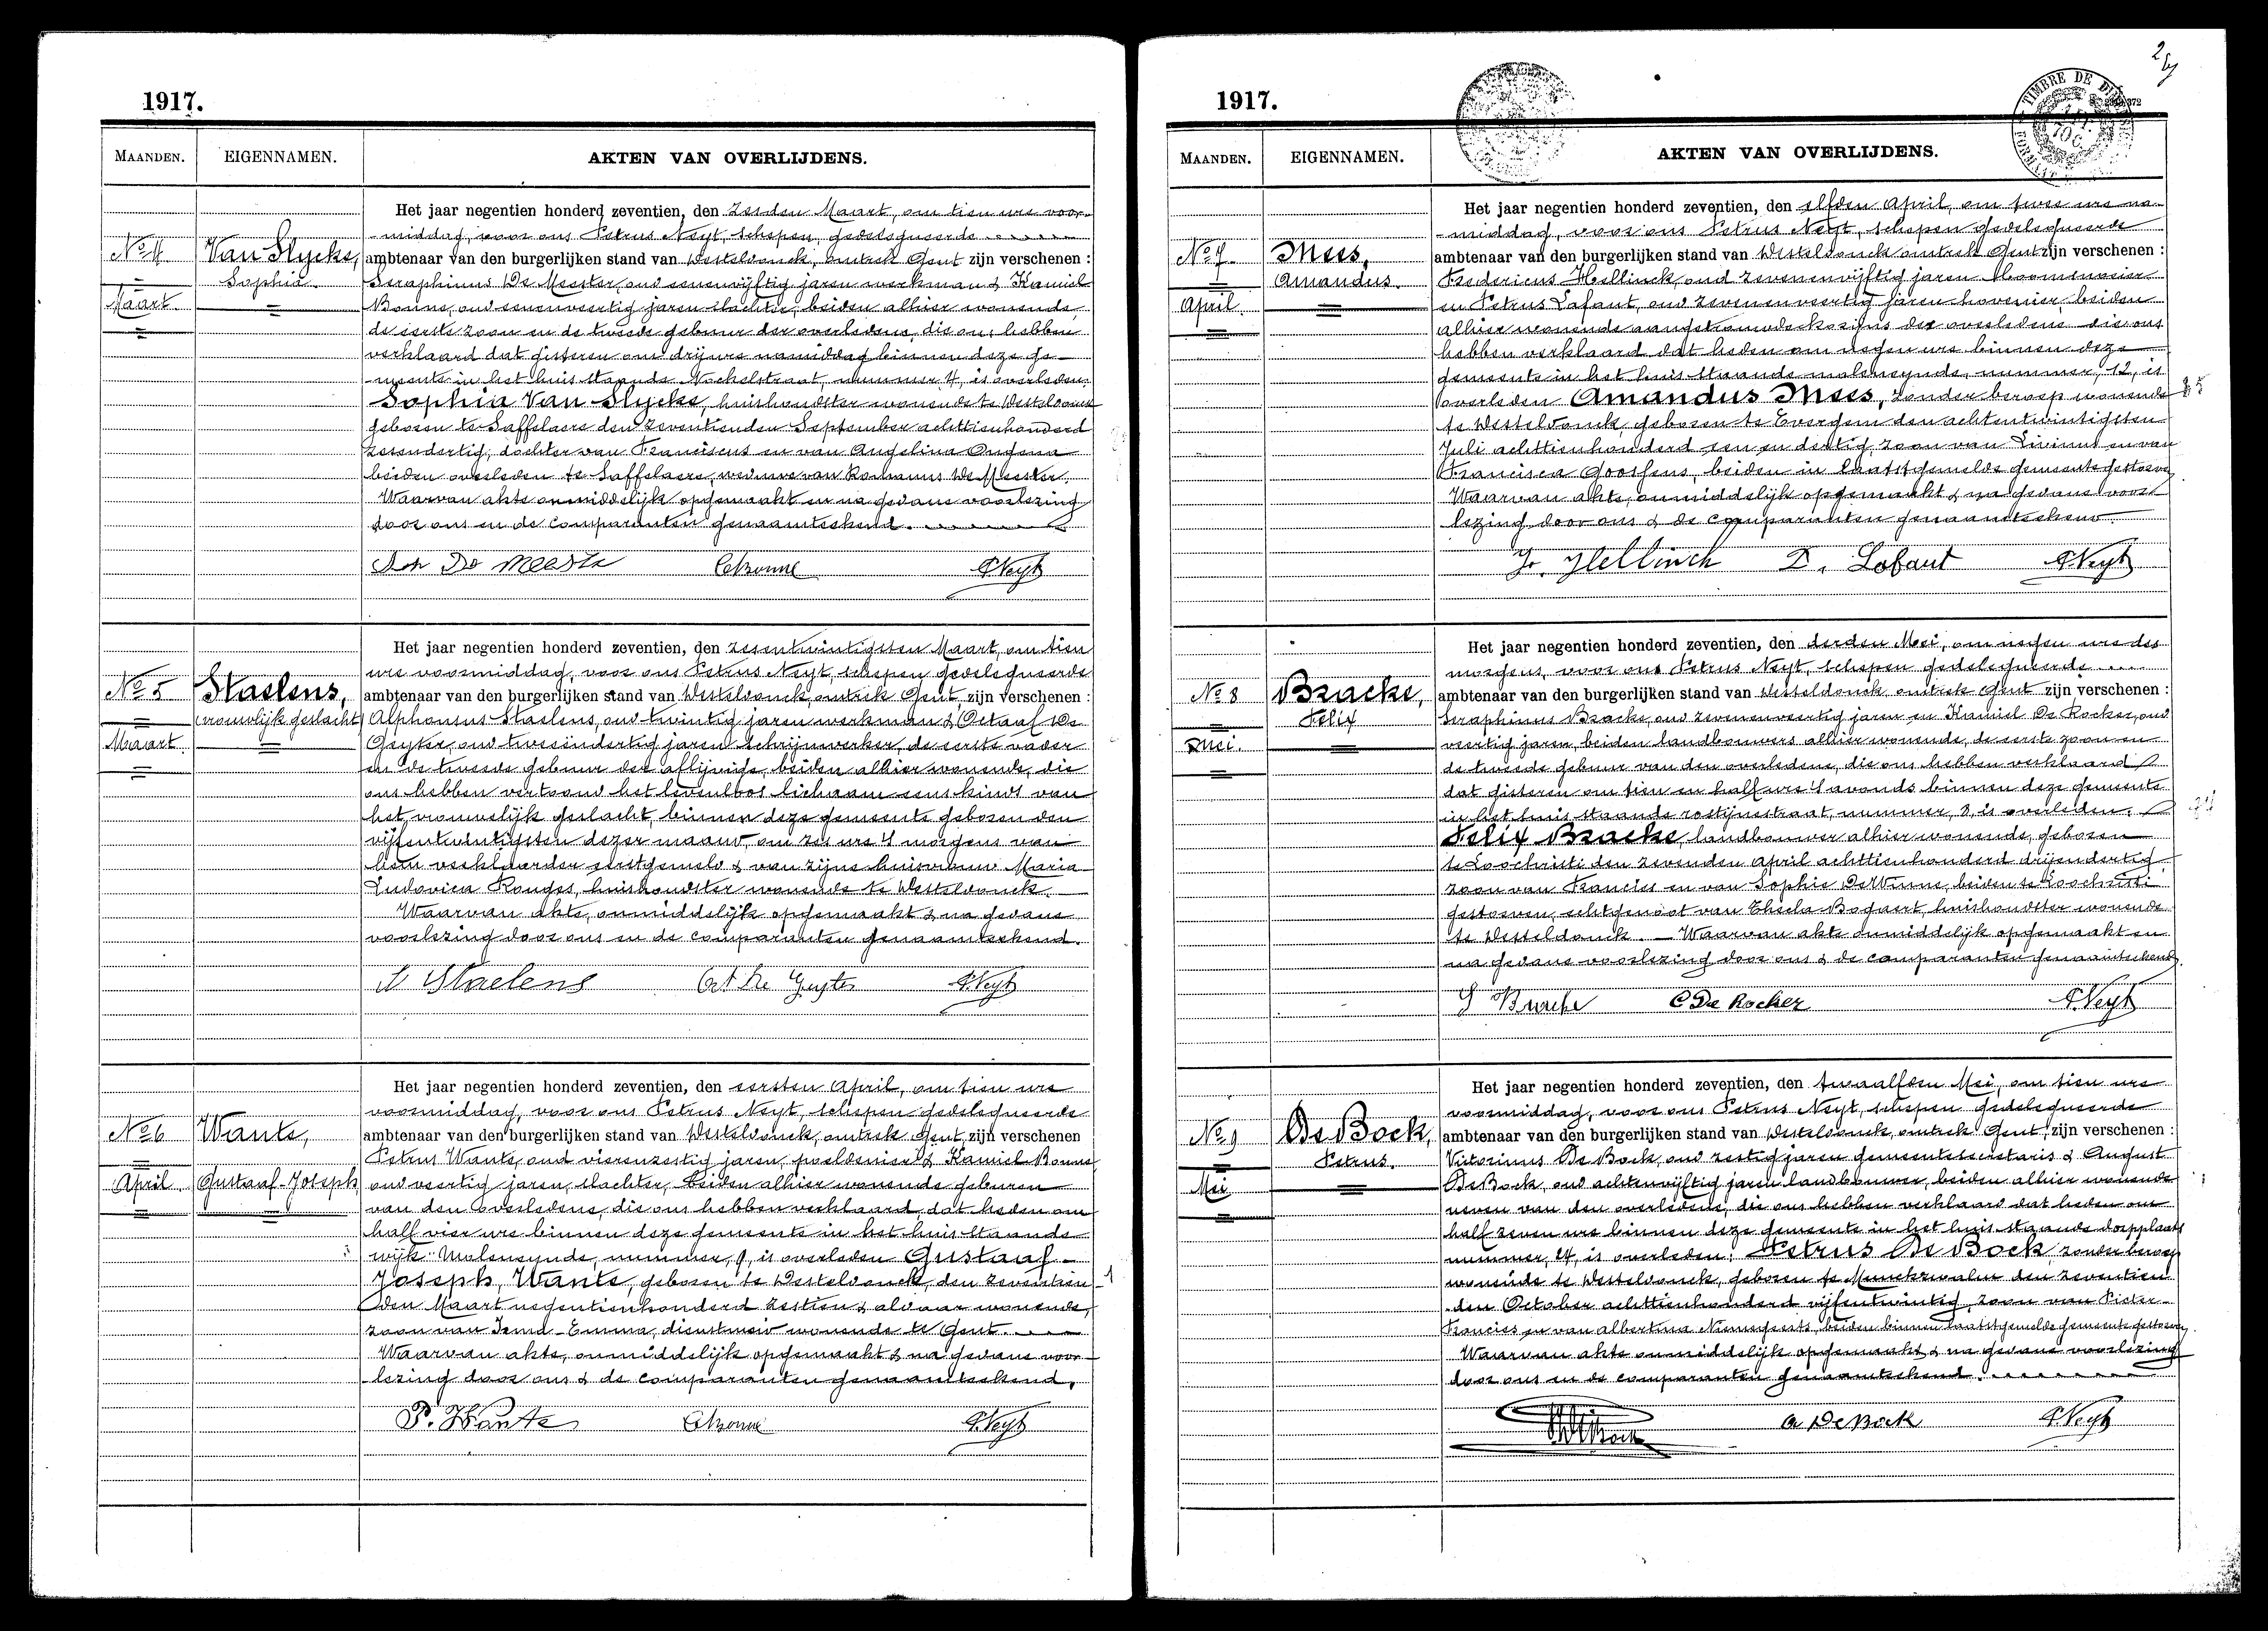 1917.
MAANDEN. EIGENNAMEN. AKTEN VAN OVERLIJDENS.
Het jaar negentien honderd zeventien, den zesden Maart, om tien ure voor-
-middag, voor ons Petrus Neyt, schepen, gedelegueerde
No 4 Van Slycke, ambtenaar van den burgerlijken stand van Westeldonck, omtrek Gent zijn verschenen :
Sophia Seraphinus De Meester, oud eenenvijftig jaren werkman & Kamiel
Maart Bonne, oud eenenveertig jaren slachter, beiden alhier wonende,
de eerste zoon en de tweede gebuur der overledene, die ons hebben
verklaard dat gisteren om drij ure namiddag binnen deze ge-
-meente in het huis staande Nockelstraat, nummer 4, is overleden:
Sophia Van Slycke, huishoudster wonende te Westeldonck
geboren te Saffelaere den zeventienden September achttienhonderd
zesendertig, dochter van Franciscus en van Angelina Ongena
beiden overleden te Saffelaere, weduwe van Romanus De Meester.
Waarvan akte onmiddelijk opgemaakt en na gedane voorlezing
door ons en de comparanten genaamteekend.
De Meester CBonne PNeyt
Het jaar negentien honderd zeventien, den zesentwintigsten Maart, om tien
ure voormiddag, voor ons Petrus Neyt, schepen gedelegueerde
No 5 Staelens, ambtenaar van den burgerlijken stand van Westeldonck, omtrek Gent, zijn verschenen :
vrouwlijk geslacht Alphonsus Staelens, oud twintig jaren werkman & Octaaf De
Maart Geyter, oud tweeëndertig jaren schrijnwerker, de eerste vader
en de tweede gebuur der aflijvige, beiden alhier wonende, die
ons hebben vertoond het levenloos lichaam eens kinds van
het vrouwelijk geslacht, binnen deze gemeente geboren den
vijfentwintigsten dezer maand, om zes ure 's morgens van
hem verklaarder eerstgemeld & van zijne huisvrouw Maria
Ludovica Ronges, huishoudster wonende te Westeldonck.
Waarvan akte, onmiddelijk opgemaakt & na gedane
voorlezing door ons en de comparanten genaamteekend.
Staelens Oct De Geyter PNeyt
Het jaar negentien honderd zeventien, den eersten April, om tien ure
voormiddag, voor ons Petrus Neyt, schepen gedelegueerde
No 6 Wante, ambtenaar van den burgerlijken stand van Westeldonck, omtrek Gent, zijn verschenen
Petrus Wante, oud vierenzestig jaren, poeldenier & Kamiel Bonne
April Gustaaf-Joseph oud veertig jaren, slachter, beiden alhier wonende geburen
van den overledene, die ons hebben verklaard, dat heden om
half vier ure binnen deze gemeente in het huis staande
wijk: Moleneynde, nummer, 9, is overleden Gustaaf-
Joseph, Wante, geboren te Westeldonck, den zeventien
den Maart negentienhonderd zestien & aldaar wonende,
zoon van Irma-Emma, dienstmeid wonende te Gent.
Waarvan akte, onmiddelijk opgemaakt & na gedane voor-
-lezing door ons & de comparanten genaamteekend.
P. Wante CBonne PNeyt
1917.
MAANDEN. EIGENNAMEN. AKTEN VAN OVERLIJDENS.
TIMBRE DE
Het jaar negentien honderd zeventien, den elfden April, om twee ure na-
-middag, voor ons Petrus Neyt, schepen gedelegueerde
No 7 Mees, ambtenaar van den burgerlijken stand van Westeldonck omtrek Gent zijn verschenen :
Amandus. Fredericus Hellinck, oud zevenenvijftig jaren bloemenosier
April en Petrus Lafaut, oud zevenenveertig jaren hovenier beiden
alhier wonende aangetrouwde kozijns der overledene die ons
hebben verklaard dat heden om negen ure binnen deze
gemeente in het huis staande moleneynde, nummer, 12, is
overleden Amandus Mees, zonder beroep wonende
te Westeldonck, geboren te Evergem den achtentwintigsten
Juli achttienhonderd een en dertig zoon van Livinus en van
Francisca Goossens, beiden in laatstgemelde gemeente gestorven
Waarvan akte, onmiddelijk opgemaakt & na gedane voor
lezing door ons & de comparanten genaamteekend.
Hellinck Lafaut PNeyt
Het jaar negentien honderd zeventien, den derden Mei, om negen ure des
morgens, voor ons Petrus Neyt, schepen gedelegueerde
No 8 Bracke, ambtenaar van den burgerlijken stand van Westeldonck, omtrek Gent zijn verschenen :
Felix Seraphinus Bracke, oud zevenenveertig jaren en Kamiel De Rocker, oud
Mei. veertig jaren, beiden landbouwers alhier wonende, de eerste zoon en
de tweede gebuur van den overledene, die ons hebben verklaard
dat gisteren om tien en half ure 's avonds binnen deze gemeente
in het huis staande rostijnestraat, nummer, 8, is overleden:
Felix Bracke, landbouwer alhier wonende, geboren
te Loochristi den zevenden April achttienhonderd drijendertig
zoon van Francies en van Sophie DeWinne, beiden te Loochristi
gestorven, echtgenoot van Thecla Bogaert, huishoudster wonende
te Westeldonck. Waarvan akte onmiddelijk opgemaakt en
na gedane voorlezing door ons & de comparanten genaamteekend.
S Bracke C De Rocker PNeyt
Het jaar negentien honderd zeventien, den twaalfden Mei, om tien ure
voormiddag, voor ons Petrus Neyt, schepen gedelegueerde
No 9 De Bock, ambtenaar van den burgerlijken stand van Westeldonck, omtrek Gent, zijn verschenen :
Petrus. Victorinus De Bock, oud zestig jaren gemeentesecretaris & August
Mei De Bock, oud achtenvijftig jaren landbouwer, beiden alhier wonende
neven van den overledene, die ons hebben verklaard dat heden om
half zeven ure binnen deze gemeente in het huis staande dorpplaats
nummer, 14, is overleden: Petrus De Bock, zonder beroep
wonende te Westeldonck, geboren te Munckzwalm den zeventien
den October achttienhonderd vijfentwintig, zoon van Pieter-
Francies en van Albertina Nimmegeerts, beiden binnen laatstgemelde gemeente gestorven,
Waarvan akte onmiddelijk opgemaakt & na gedane voorlezing
door ons en de comparanten genaamteekend.
A De Bock PNeyt